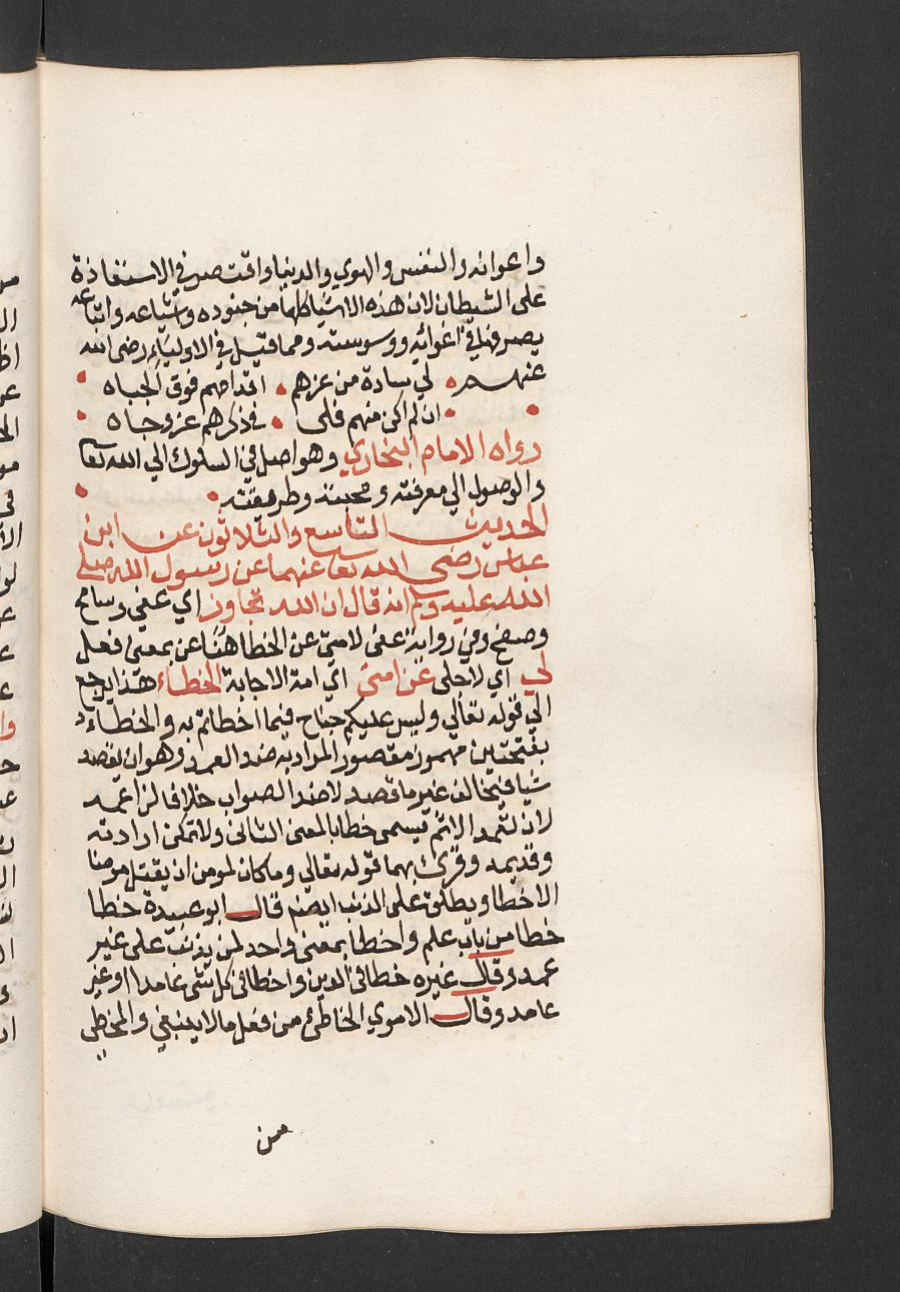 واعوانه والنفس والهوي والدنيا واقتصر في الاستعاذة
علي الشيطان لان هذه الاشيا كلها من جنوده واشياعه واتباعه
يصرفها في اغوائه ووسوسته ومما قيل في الاولياء رضي الله
عنهم • لي سادة من عزهم • اقدامهم فوق الجباه •
• ان لم اكن منهم فلي • في ذكرهم عز وجاه •
رواه الامام البخاري وهو اصل في السلوك الي الله تعا
والوصول الي معرفته ومحبته وطريقته •
الحديث التاسع والثلاثون عن ابن
عباس رضي الله تعا عنهما عن رسول الله صلي
الله عليه وسلم انه قال ان الله تجاوز اي عفي وسامح
وصفح وفي رواية عفي لامتي عن الخطا هنا عن بمعني فعل
لي اي لاجلي عن امتي اي امة الاجابة الخطاء هذا يرجع
الي قوله تعالي وليس عليكم جناح فيما اخطاتم به والخطاء
بفتحتين مهموز مقصور المراد به ضد العمد وهو ان يقصد
شيا فيخالف غير ما قصد لا ضد الصواب خلافا لزاعمه
لان تعمد الاثم يسمي خطا بالمعني الثاني ولا تمكن ارادته
وقديمه وقرئ بهما قوله تعالي وما كان لمومن ان يقتل مومنا
الا خطا ويطلق علي الذنب ايضا قال ابو عبيدة خطا
خطا من باب علم واخطا بمعني واحد لمن يذنب علي غير
عمد وقال غيره خطا في الدين واخطا في كل شي عامدا او غير
عامد وقال الاموي الخاطئ من فعل ما لا ينبغي والمخطي
من